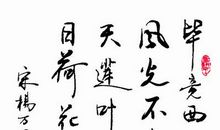 毕竟西
风光不
天莲叶
日荷花
宋楊万